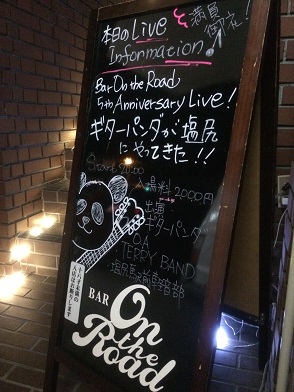 本日のLive
Information!
満員
御礼!
Bar On the Road
5th Anniversary Live!
ギターパンダが塩尻
にやってきた!!
Start 20:00
料 2000円
出演
ギターパンダ
O.A
TERRY BAND
塩尻駅前
部
BAR
On
the
Road